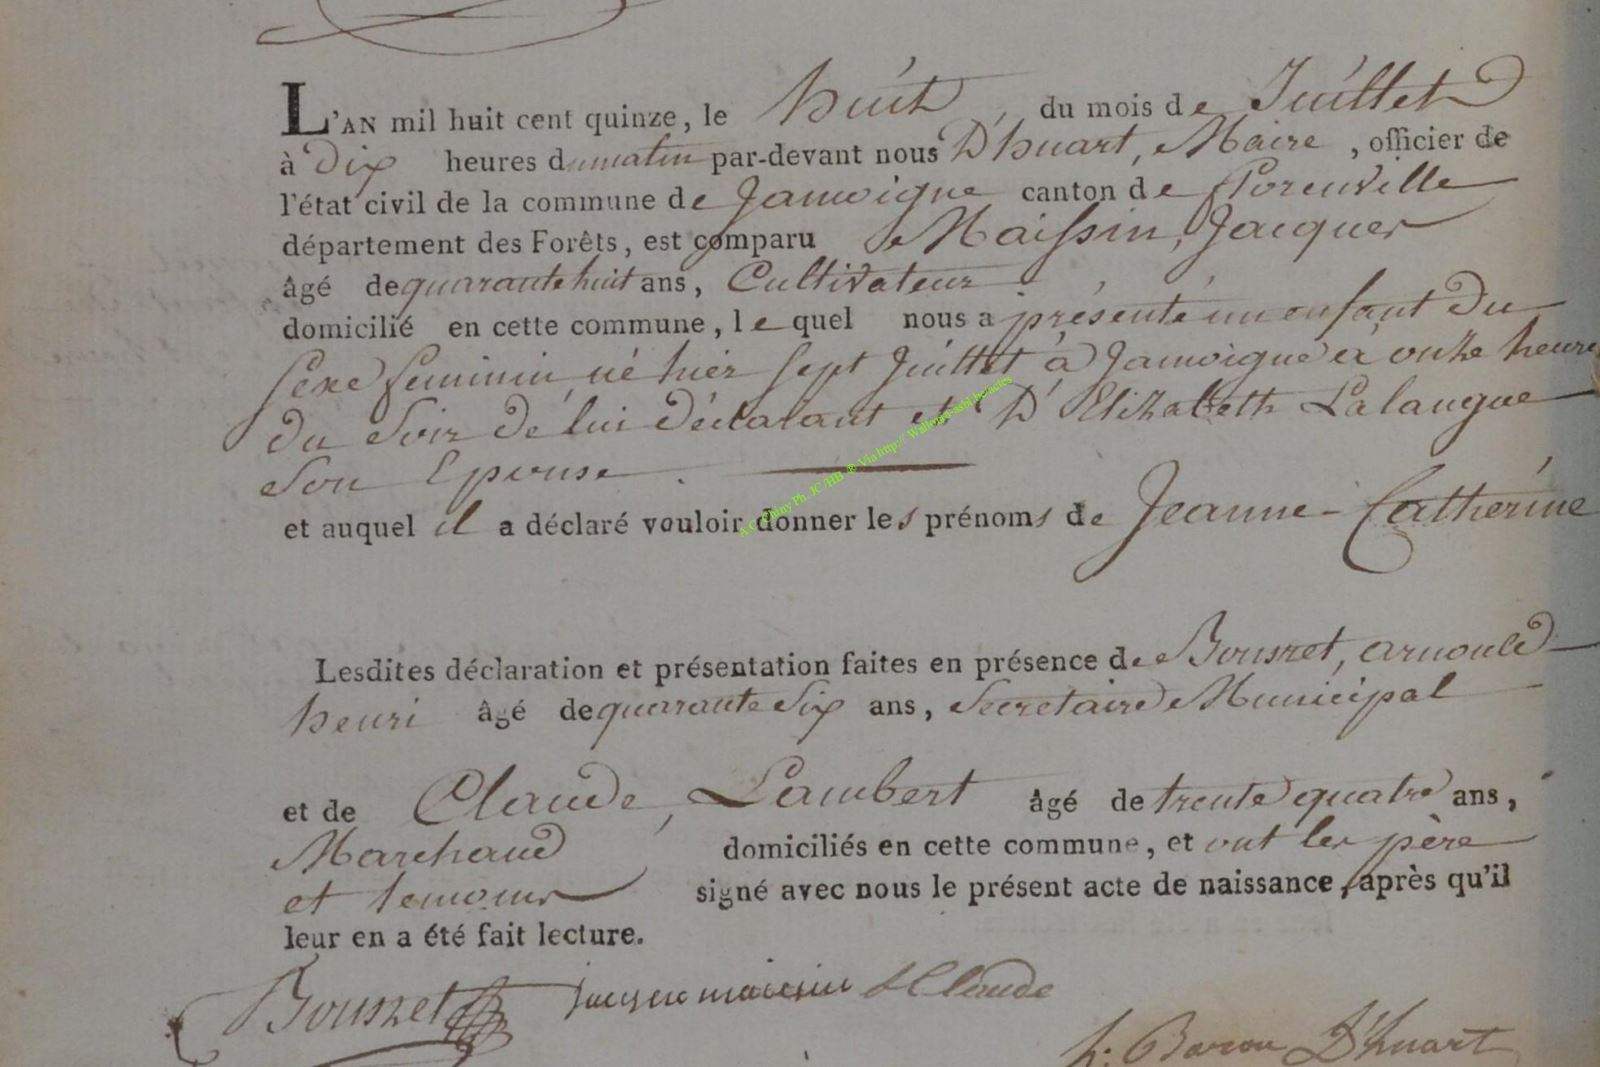 L'AN mil huit cent quinze, le huit du mois de Juillet
à dix heures du matin par-devant nous D'huart, Maire, officier de
l'état civil de la commune de Jamoigne canton de Florenville
département des Forêts, est comparu Maissin, Jacques
âgé de quarante huit ans, Cultivateur
domicilié en cette commune, le quel nous a présenté un enfant du
Sexe feminin né hier Sept Juillet à Jamoigne à onze heures
du Soir de lui déclarant et D' Elizabeth Lalangue
Son Epouse.
et auquel il a déclaré vouloir donner les prénoms de Jeanne-Catherine
Lesdites déclaration et présentation faites en présence de Bousret, arnould
henri âgé de quarante Six ans, Secretaire Municipal
et de Claude, Lambert âgé de trente quatre ans,
Marchand domiciliés en cette commune, et ont les père
et temoins signé avec nous le présent acte de naissance, après qu'il
leur en a été fait lecture.
Bousret Jacque maissin L Claude
h: Baron D'huart